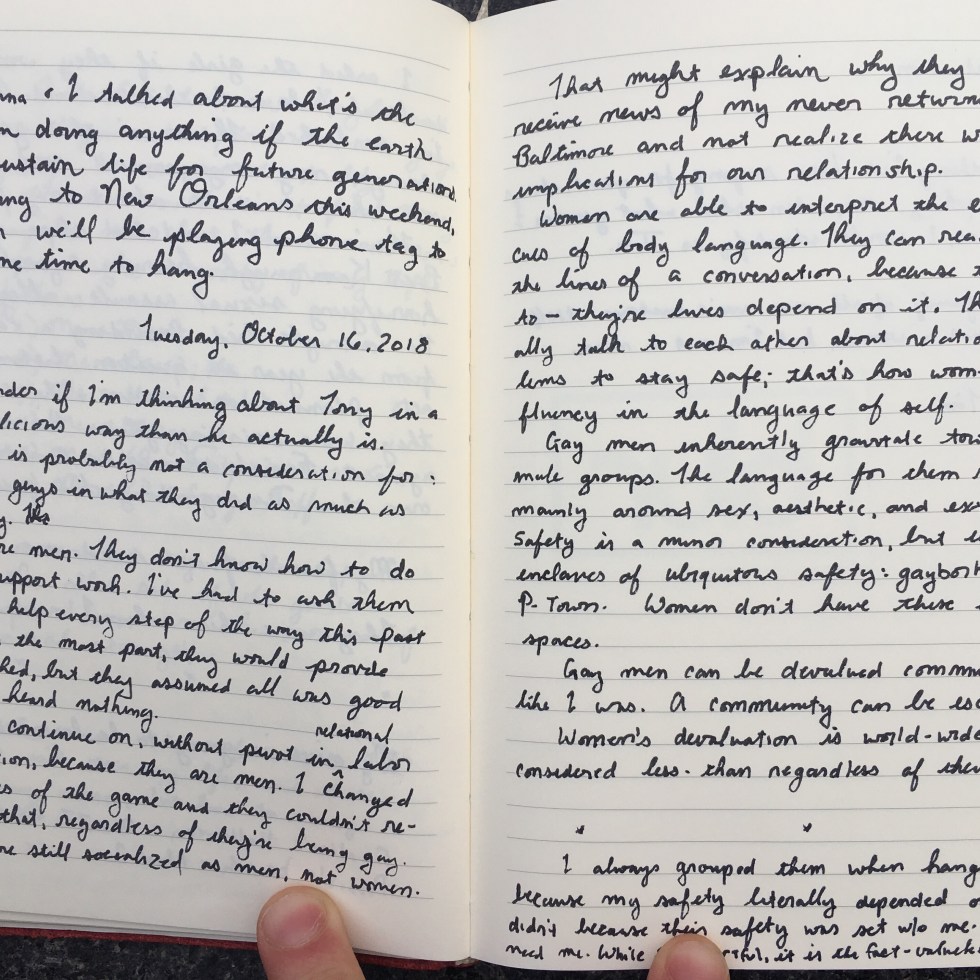 nna & I talked about what's the
n doing anything if the earth
ustain life for future generations.
ng to New Orleans this weekend,
we'll be playing phone tag to
me time to hang.
Tuesday, October 16, 2018
nder if I'm thinking about Tony in a
licious way than he actually is.
is probably not a consideration for :
guys in what they did as much as
y. The
re men. They don't know how to do
upport work. I've had to ask them
help every step of the way this past
the most part, they would provide
ked, but they assumed all was good
heard nothing.
continue on, without pivot in relational labor
ion, because they are men. I changed
es of the game and they couldn't re-
that, regardless of they're being gay.
re still socialized as men, not women.
That might explain why they
receive news of my never return
Baltimore and not realize there w
implications for our relationship.
Women are able to interpret the e
cues of body language. They can rea
the lines of a conversation, because t
to - they're lives depend on it. Th
ally talk to each other about relatio
lems to stay safe; that's how wom
fluency in the language of self.
Gay men inherently gravitate tow
male groups. The language for them
mainly around sex, aesthetic, and ex
Safety is a minor consideration, but
enclaves of ubiquitous safety: gaybor
P-Town. Women don't have these
spaces.
Gay men can be devalued commu
like I was. A community can be esc
Women's devaluation is world-wide
considered less-than regardless of the
* *
I always grouped them when hang
because my safety literally depended o
didn't because their safety was set w/o me.
need me. While it is the fact-